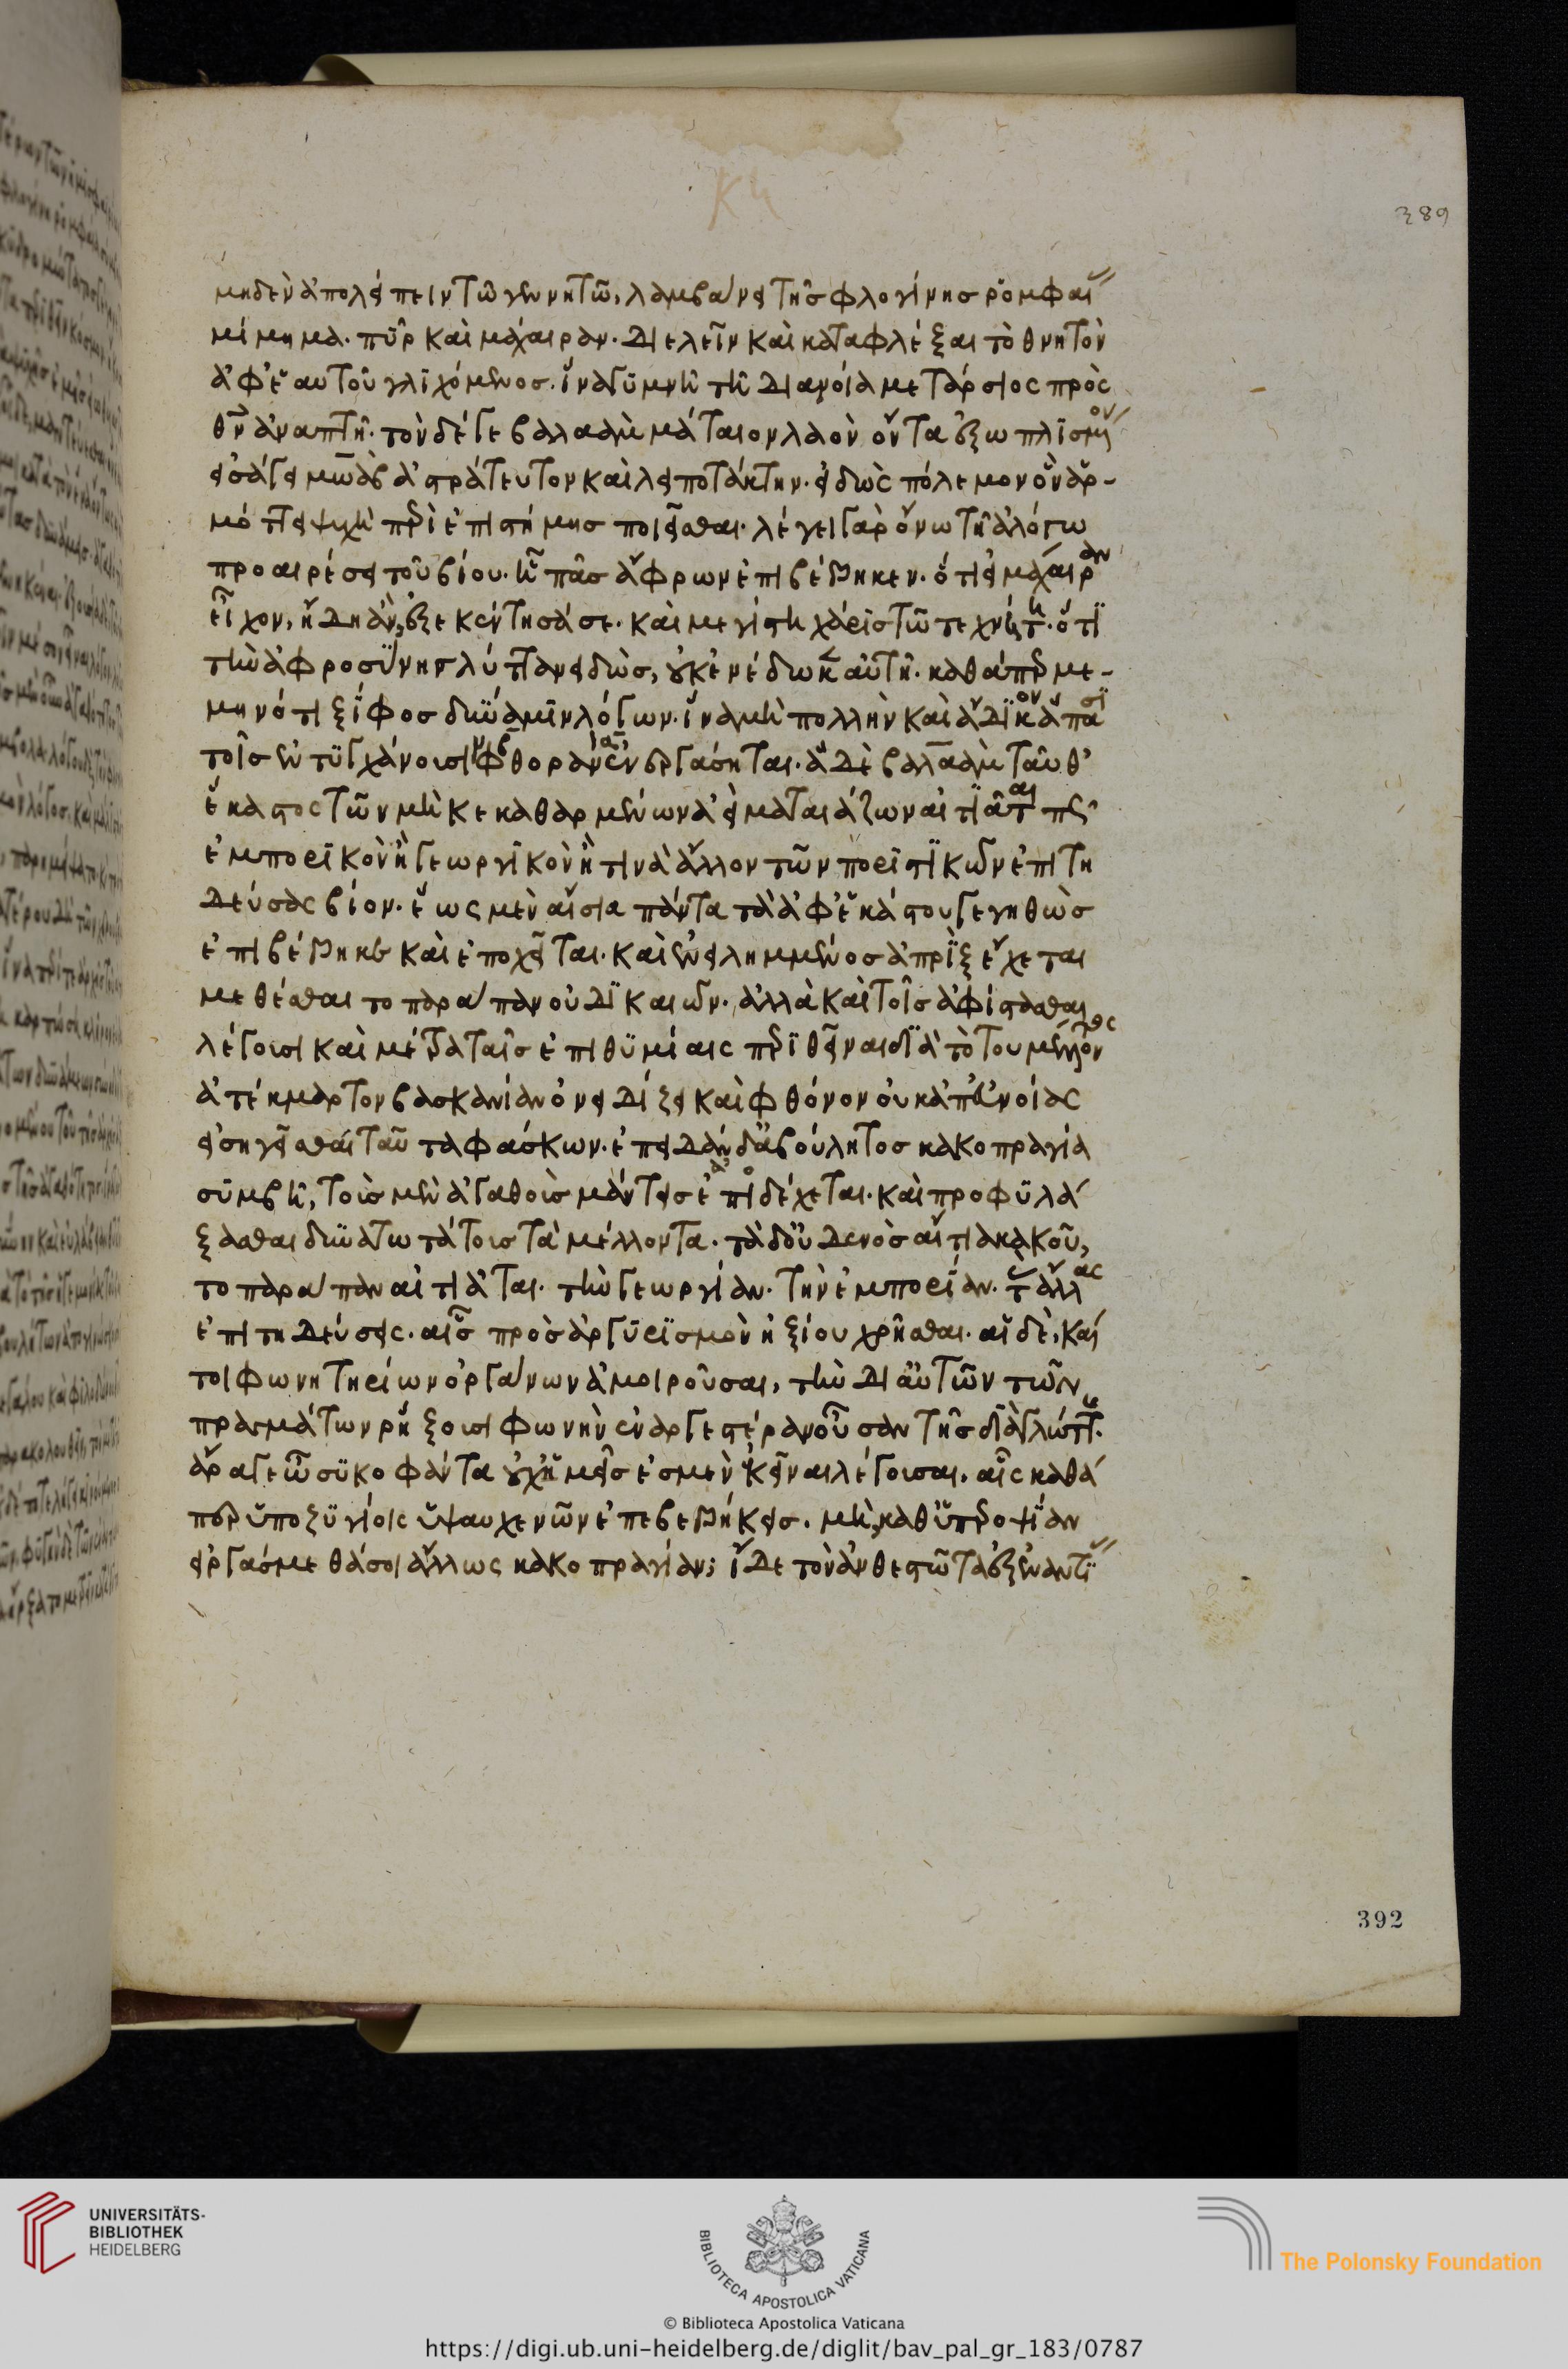 389
κη
μηδὲν ἀπολείπειν τῶ γενητῶ, λαμβάνει τῆς φλογίνης ῥομφαί
μίμημα. πῦρ καὶ μάχαιραν. διελεῖν καὶ καταφλέξαι τὸ θνητὸν
ἀφ' ἑαυτοῦ γλιχόμενος. ἵνα γυμνῆ τῆ διανοία μετάρσιος πρὸς
θν ἀναπτῆ. τὸν δέ γε βαλαὰμ μάταιον λαὸν ὄντα ἔξω πλισμ(ον)
εἰσάγει μωσ ἀστράτευτον καὶ λειποτάκτην. εἰδὼς πόλεμον ὃν ἁρ-
μόττει ψυχῆ περὶ ἐπιστήμης ποιεῖσθαι. λέγει γὰρ ὄνω τῆ ἀλόγω
προαιρέσει τοῦ βίου. ἧ πᾶς ἄφρων ἐπιβέβηκεν. ὅτι εἰ μάχαιραν
εἶχον, ἤδη ἄν, ἐξεκέντησά σε. καὶ μεγίστη χάρις τῶ τεχνίτη. ὅτι
τὴν ἀφροσύνης λύτταν εἰδὼς, οὐκ ἐνέδωκεν αὐτῆ. καθάπερ με-
μηνότι ξίφος δύναμιν λόγων. ἵνα μὴ πολλὴν καὶ ἄδικον ἅπασι
τοῖς ἐντυγχάνουσι φθορὰν ἐργάσηται. ἃ δὲ βαλαὰμ ταῦθ'
ἕκαστος τῶν μὴ κεκαθαρμένων ἀεὶ ματαιάζων αἰτιᾶται πως
ἐμπορικὸν ἢ γεωργικὸν ἤ τινα ἄλλον τῶν ποριστικῶν ἐπιτη
δεύσας βίον. ἕως μὲν αἴσια πάντα τὰ ἀφ' ἑκάστου γεγηθὼς
ἐπιβέβηκε καὶ ἐποχεῖται. καὶ ἐνειλημμένος ἀπρὶξ ἔχεται
μεθέσθαι το παράπαν οὐ δικαιῶν. ἀλλὰ καὶ τοῖς ἀφίστασθαι
λέγουσι καὶ μέτρα ταῖς ἐπιθυμίαις περιθεῖναι διὰ τὸ του μέλλοντος
ἀτέκμαρτον βασκανίαν ὀνειδίζει καὶ φθόνον οὐκ ἀπ' εὐνοίας
εἰσηγεῖσθαι ταῦτα φάσκων. ἐπειδὰν δὲ ἀβούλητος κακοπραγία
συμβῆ, τοὺς μὲν ἀγαθοὺς μάντεις ἐπιδέχεται. καὶ προφυλά
ξασθαι δυνατωτάτους τὰ μέλλοντα. τὰ δ' οὐδενὸς αἴτια κακοῦ,
το παράπαν αἰτιᾶται. τὴν γεωργίαν. τὴν ἐμπορίαν. τὰς ἄλλας
ἐπιτηδεύσεις. αἷς πρὸς ἀργυρισμὸν ἠξίου χρῆσθαι. αἱ δὲ, καί
τοι φωνητηρίων ὀργάνων ἀμοιροῦσαι, τὴν δι αὐτῶν τῶν
πραγμάτων ῥήξουσι φωνὴν ἐναργεστέραν οὖσαν τῆς διὰ γλώττης.
ἆρά γε ὦ συκοφάντα οὐχ ἡμεῖς ἐσμὲν ἐκεῖναι λέγουσαι. αἷς καθά
περ ὑποζυγίοις ὑψαυχενῶν ἐπεβεβήκεις. μὴ καθ' ὑπεροψίαν
εἰργάσμεθά σοι ἄλλως κακοπραγίαν; ἴδε τὸν ἀνθεστῶτα ἐξεναντί
392
UNIVERSITÄTS-
BIBLIOTHEK
HEIDELBERG
BIBLIOTECA APOSTOLICA VATICANA
The Polonsky Foundation
© Biblioteca Apostolica Vaticana
https://digi.ub.uni-heidelberg.de/diglit/bav_pal_gr_183/0787